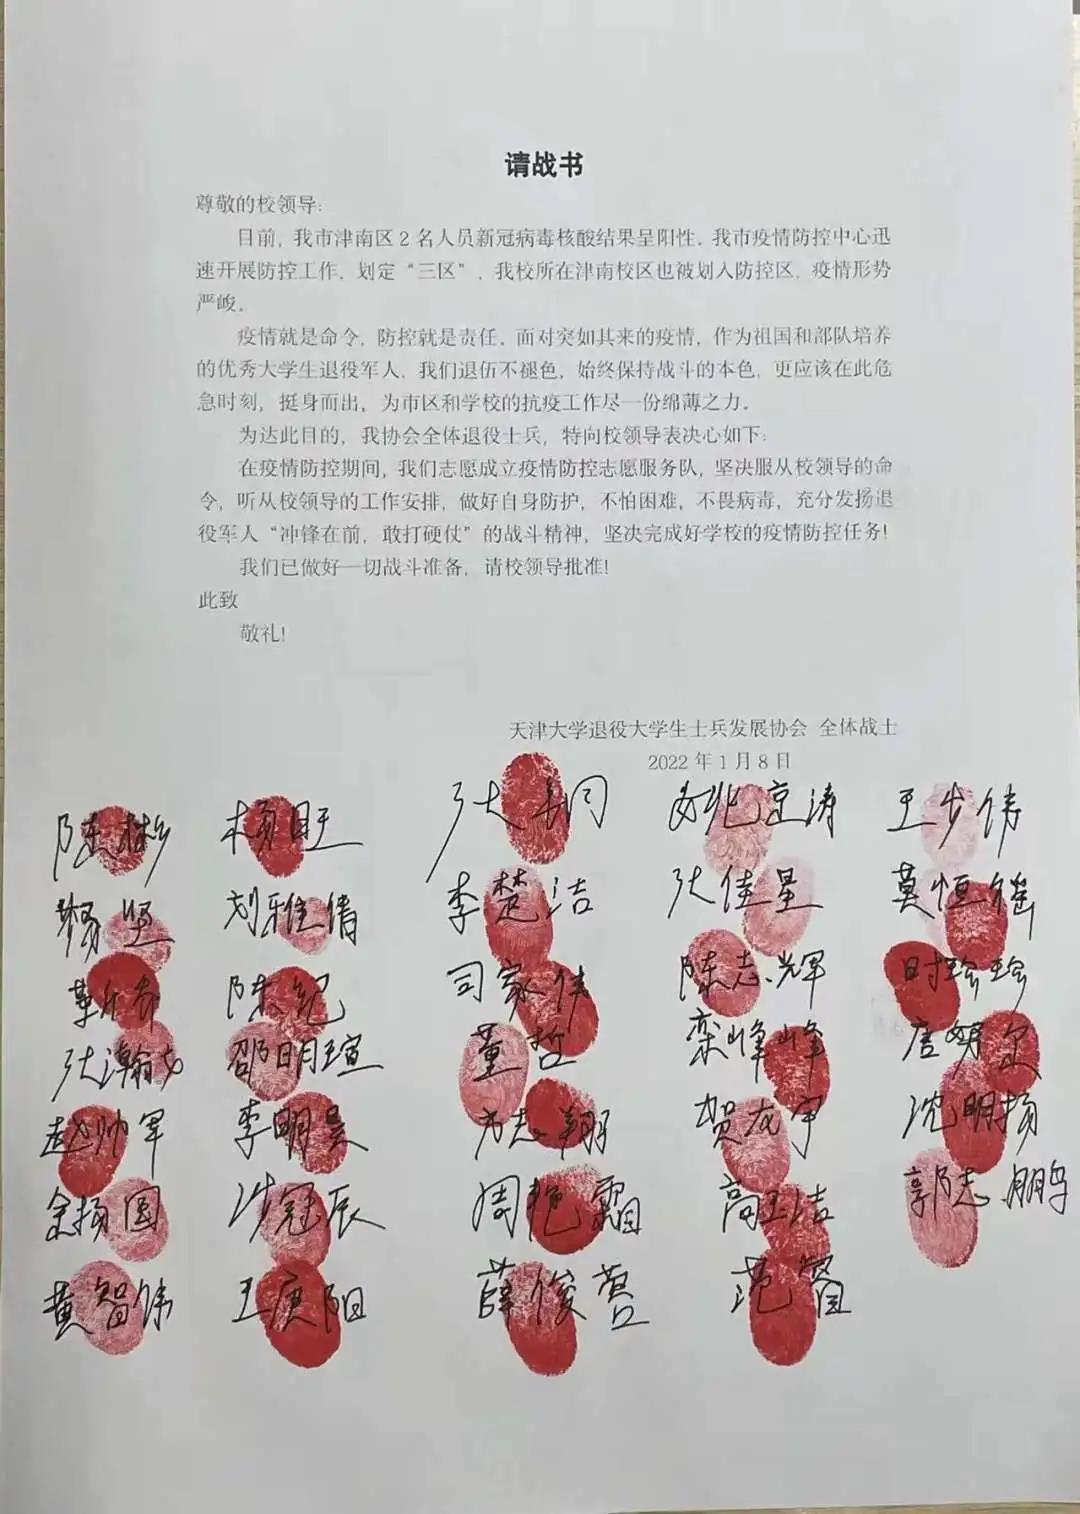 请战书
尊敬的校领导：
目前，我市津南区2名人员新冠病毒核酸结果呈阳性。我市疫情防控中心迅
速开展防控工作，划定“三区”，我校所在津南校区也被划入防控区，疫情形势
严峻。
疫情就是命令，防控就是责任。面对突如其来的疫情，作为祖国和部队培养
的优秀大学生退役军人，我们退伍不褪色，始终保持战斗的本色，更应该在此危
急时刻，挺身而出，为市区和学校的抗疫工作尽一份绵薄之力。
为达此目的，我协会全体退役士兵，特向校领导表决心如下：
在疫情防控期间，我们志愿成立疫情防控志愿服务队，坚决服从校领导的命
令，听从校领导的工作安排，做好自身防护，不怕困难，不畏病毒，充分发扬退
役军人“冲锋在前，敢打硬仗”的战斗精神，坚决完成好学校的疫情防控任务！
我们已做好一切战斗准备，请校领导批准！
此致
敬礼！
天津大学退役大学生士兵发展协会 全体战士
2022年1月8日
陈彬 杨旺 王步伟
杨坚 刘雅倩 李楚洁 张佳星 莫恒徭
陈纪 司家伟 陈志辉 时珍珍
张瀚文 邵明瑄 董哲 栾峰峰
赵帅军 李明昊 贺友宇 沈明扬
余扬图 沙冠辰 周艳霜 高玉洁 郭志鹏
黄智伟 王庚阳 薛俊营